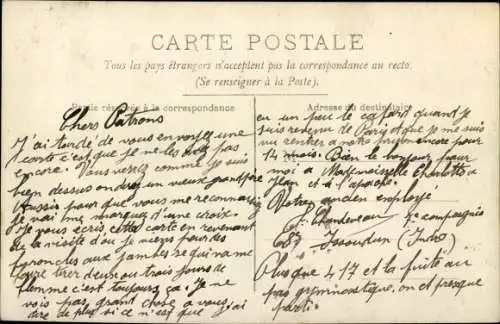 CARTE POSTALE
Tous les pays étrangers n'acceptent pas la correspondance au recto.
(Se renseigner à la Poste).
Partie réservée à la correspondance
Adresse du destinataire
Chers Patrons
J'ai tardé de vous envoyer une
carte c'est que je ne les pas
encore. Vous verrez comme je suis
bien dessus on dirait un vieux grand père
Aussi pour que vous me reconnaissiez
je vai me marquez d'une croix.
Je vous ecris cette carte en revenant
de la visite d'ou je viens pour des
furoncles aux jambes se qui va me
faire tirer deux ou trois jours de
flemme c'est toujours ça. Je ne
vois pas grand chose a vous
dire de plus si ce n'est que j'ai
en un peu le cafard quand je
suis revenu de Paris et que je me suis
vu rentrer a notre prison encore pour
14 mois. Bien le bonjour pour
moi a Mademoiselle Charlotte a
Jean et à l'apache.
Votre ancien employé
4e compagnies
Issoudun (Indre)
Plus que 417 et la fuite au
pas gymnastique, on est presque
parti.